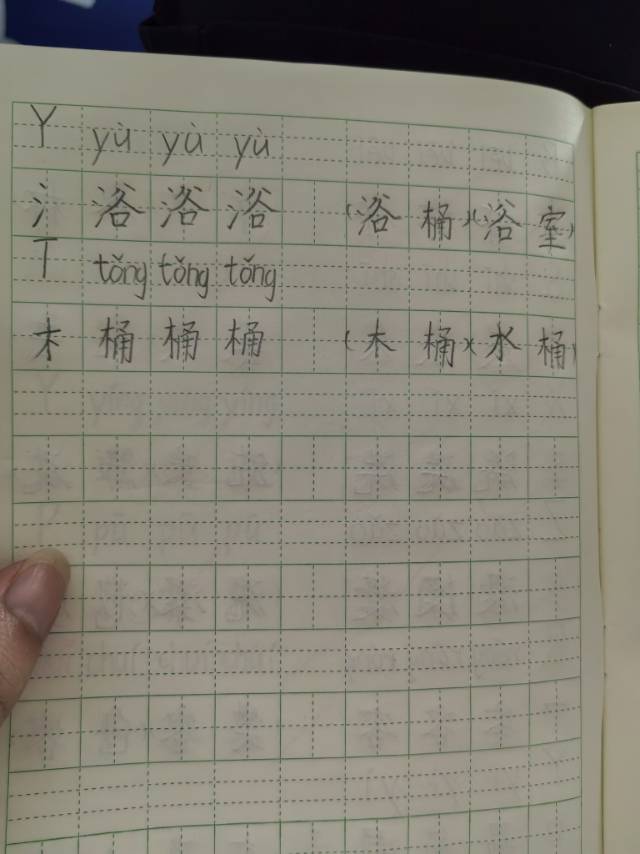 Y yù yù yù
氵 浴 浴 浴 (浴 桶)(浴 室)
T tǒng tǒng tǒng
木 桶 桶 桶 (木 桶)(水 桶)